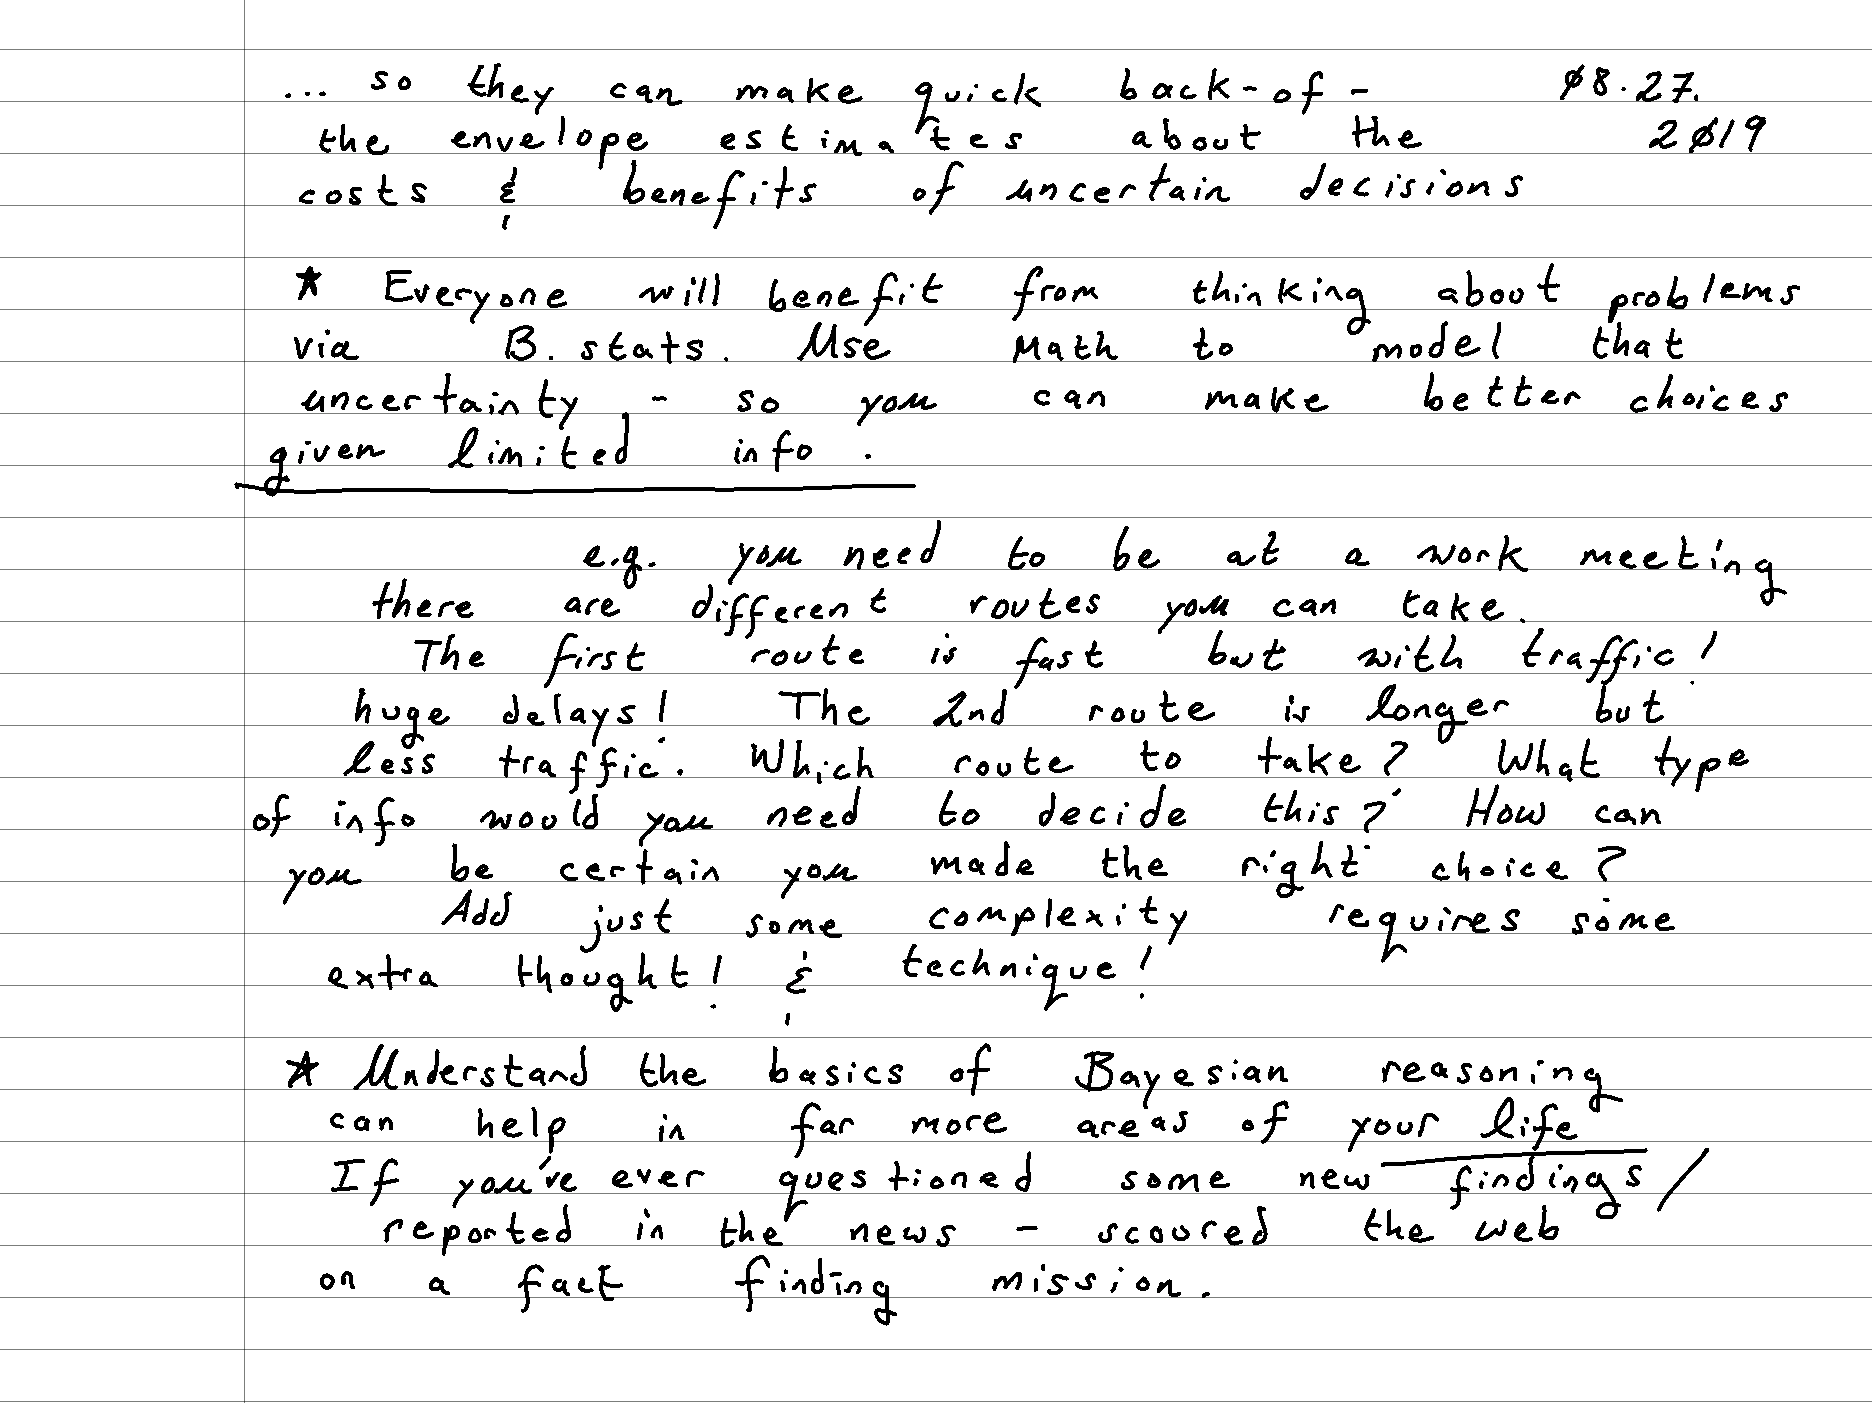 ... so they can make quick back-of- ø8.27.
the envelope estimates about the 2ø19
costs & benefits of uncertain decisions
★ Everyone will benefit from thinking about problems
via B. stats. Use Math to model that
uncertainty, - so you can make better choices
given limited info.
e.g. you need to be at a work meeting
there are different routes you can take.
The first route is fast but with traffic!
huge delays! The 2nd route is longer but
less traffic. Which route to take? What type
of info would you need to decide this? How can
you be certain you made the right choice?
Add just some complexity requires some
extra thought! & technique!
★ Understand the basics of Bayesian reasoning
can help in far more areas of your life
If you've ever questioned some new findings/
reported in the news - scoured the web
on a fact finding mission.